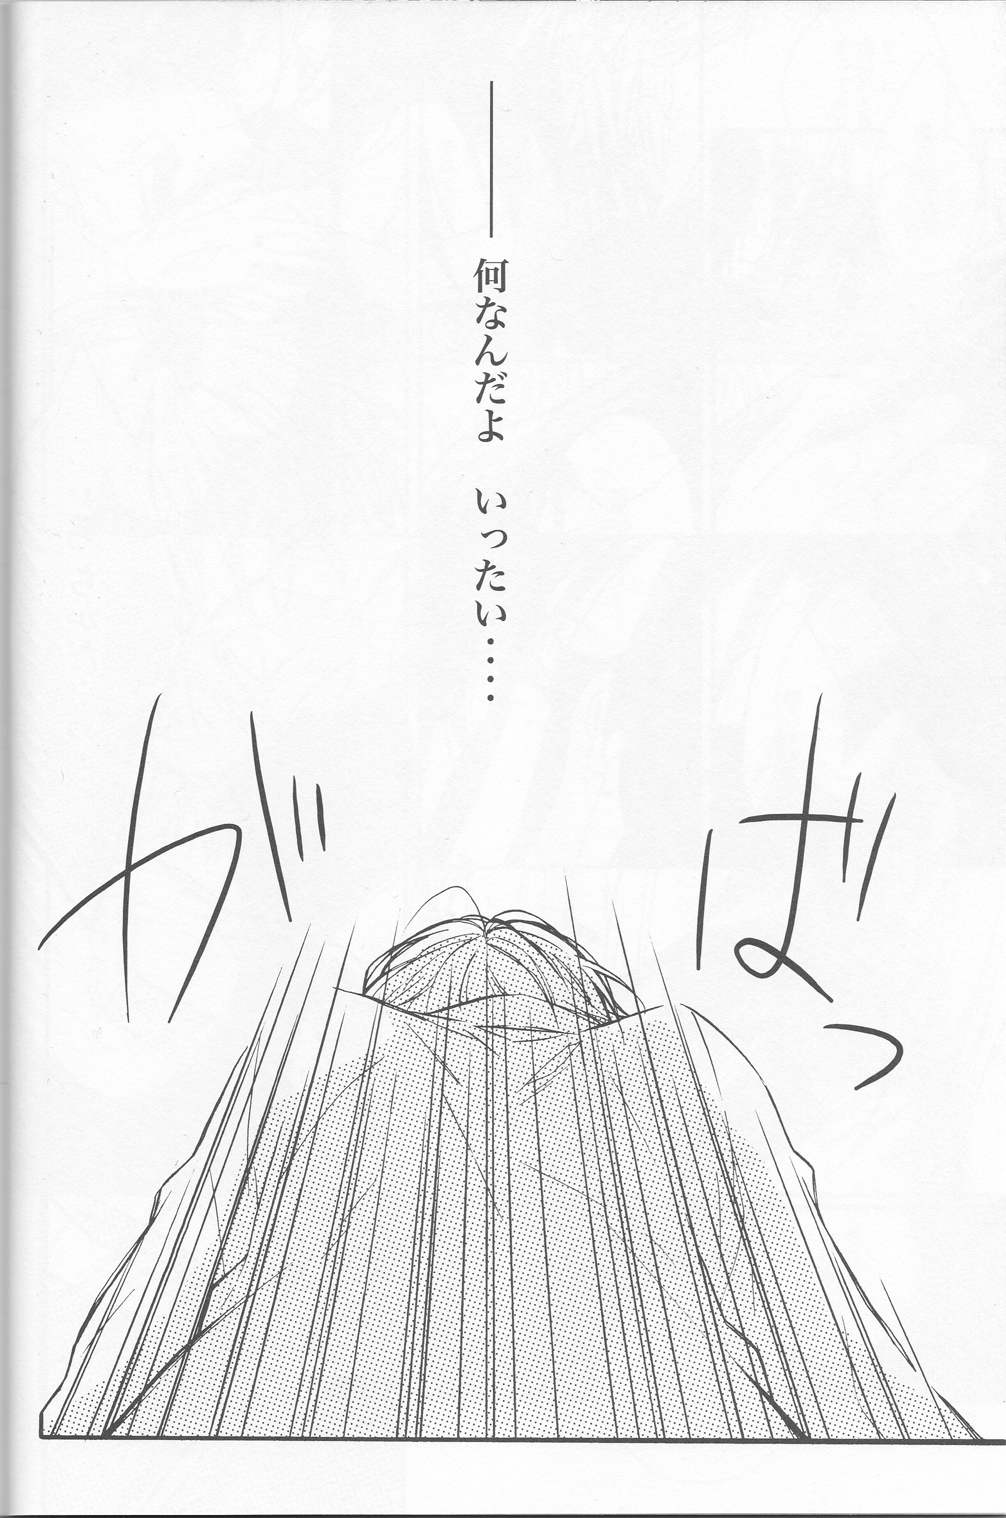 ――何なんだよ　いったい‥‥
がばっ